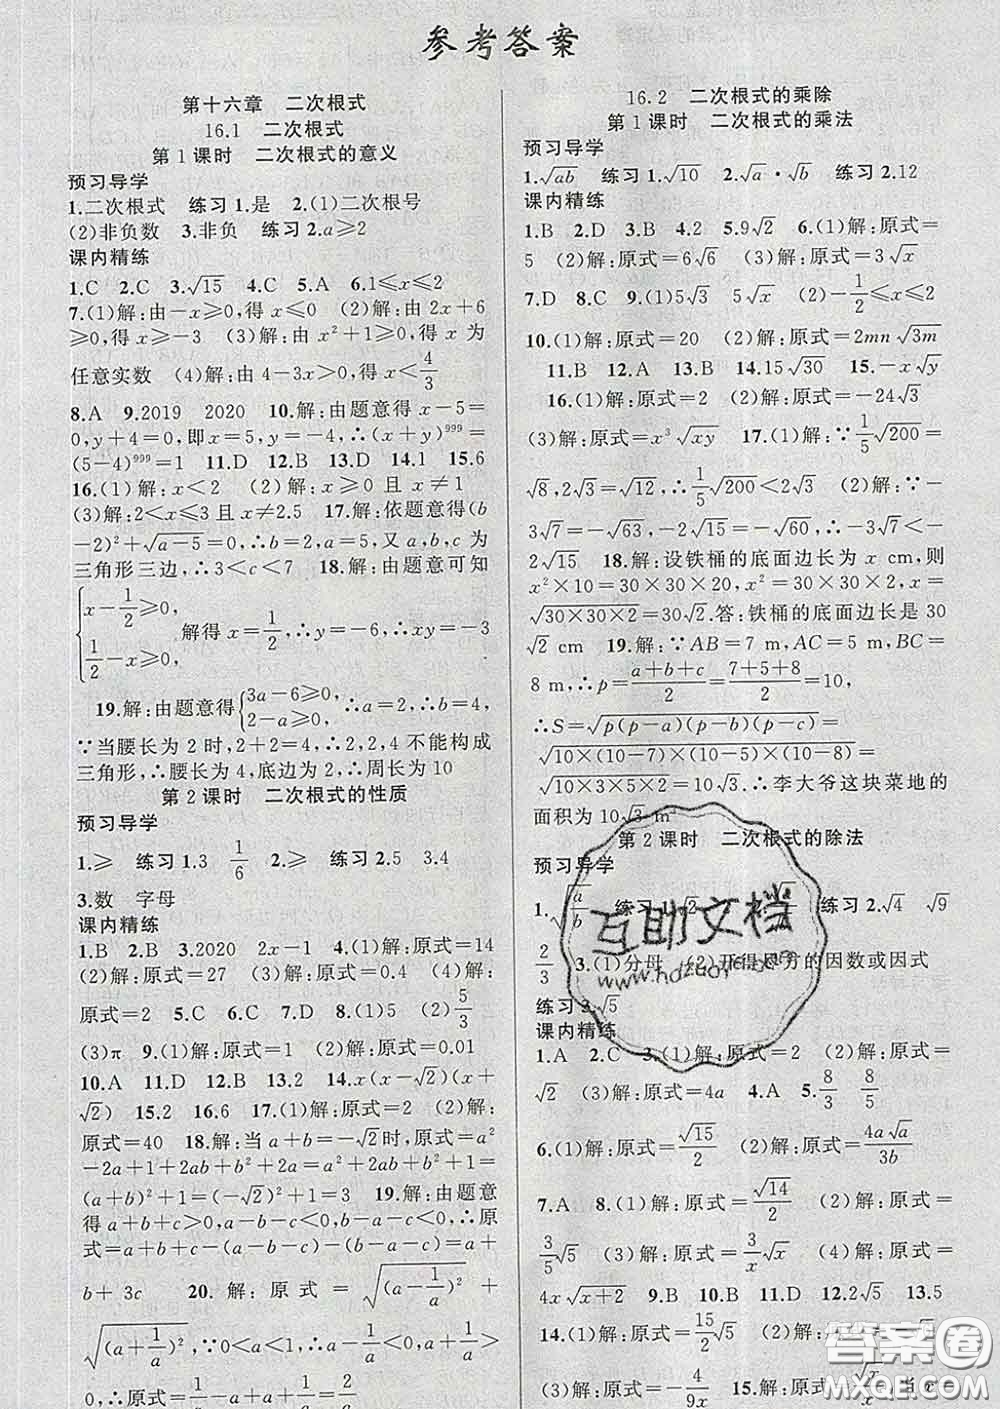 参考答案
第十六章 二次根式
16.1 二次根式
第1课时 二次根式的意义
预习导学
1.二次根式 练习1.是 2.(1)二次根号
(2)非负数 3.非负 练习2.a≥2
课内精练
1.C 2.C 3.√15 4.C 5.A 6.1≤x≤2
7.(1)解:由-x≥0,得x≤0 (2)解:由2x+6
≥0,得x≥-3 (3)解:由x²+1≥0,得x为
任意实数 (4)解:由4-3x>0,得x<4/3
8.A 9.2019 2020 10.解:由题意得x-5=
0,y+4=0,即x=5,y=-4,∴(x+y)⁹⁹⁹=
(5-4)⁹⁹⁹=1 11.D 12.B 13.D 14.1 15.6
16.(1)解:x<2 (2)解:x≥0且x≠1
(3)解:2<x≤3且x≠2.5 17.解:依题意得(b
-2)²+√(a-5)=0,∴b=2,a=5,又a,b,c为
三角形三边,∴3<c<7 18.解:由题意可知
{x-1/2≥0, 1/2-x≥0, 解得x=1/2,∴y=-6,∴xy=-3
19.解:由题意得{3a-6≥0, 2-a≥0, ∴a=2,∴b=4,
∵当腰长为2时,2+2=4,∴2,2,4不能构成
三角形,∴腰长为4,底边为2,∴周长为10
第2课时 二次根式的性质
预习导学
1.≥ 练习1.3 1/6 2.≥ 练习2.5 3.4
3.数 字母
课内精练
1.B 2.B 3.2020 2x-1 4.(1)解:原式=14
(2)解:原式=27 (3)解:原式=0.4 (4)解:
原式=2 5.C 6.C 7.D 8.(1)5 (2)5/3
(3)π 9.(1)解:原式=1 (2)解:原式=0.01
10.A 11.A 12.B 13.2 14.x(x-√2)(x+
√2) 15.2 16.6 17.(1)解:原式=2 (2)解:
原式=40 18.解:当a+b=-√2时,原式=a²
-2a+1+2ab+b²+2a=a²+2ab+b²+1=
(a+b)²+1=(-√2)²+1=3 19.解:由题意
得a+b+c>0,a-b-c<0,b-a-c<0,∴原
式=a+b+c-(a-b-c)-(b-a-c)=a+
b+3c 20.解:原式=√((a-1/a)²)+
√((a+1/a)²),∵0<a<1,∴a-1/a<0,a+1/a>
0,∴原式=1/a-a+a+1/a=2/a
16.2 二次根式的乘除
第1课时 二次根式的乘法
预习导学
1.√ab 练习1.√10 2.√a·√b 练习2.12
课内精练
1.B 2.D 3.B 4.2 5.9√2 6.(1)解:原式=
5 (2)解:原式=6√6 (3)解:原式=3√x
7.D 8.C 9.(1)5√3 5√3 (2)-1/2≤x≤2
10.(1)解:原式=20 (2)解:原式=2mn√3m
11.B 12.A 13.B 14.15√30 15.-x√y
16.(1)解:原式=2 (2)解:原式=-24√3
(3)解:原式=x³√xy 17.(1)解:∵1/5√200=
√8,2√3=√12,∴1/5√200<2√3 (2)解:∵-
3√7=-√63,-2√15=-√60,∴-3√7<-
2√15 18.解:设铁桶的底面边长为x cm,则
x²×10=30×30×20,x²=30×30×2,x=
√(30×30×2)=30√2.答:铁桶的底面边长是30
√2 cm 19.解:∵AB=7 m,AC=5 m,BC=
8 m,∴p=(a+b+c)/2=(7+5+8)/2=10,
∴S=√(p(p-a)(p-b)(p-c))=
√(10×(10-7)×(10-5)×(10-8))=
√(10×3×5×2)=10√3.∴李大爷这块菜地的
面积为10√3 m²
第2课时 二次根式的除法
预习导学
1.√(a/b) 练习 练习2.√4 √9
2/3 3.(1)分母 (2)开得尽方的因数或因式
练习3.√5
课内精练
1.A 2.C 3.(1)解:原式=2 (2)解:原式=
√2 (3)解:原式=4a 4.A 5.8/3 8/5
6.(1)解:原式=√15/2 (2)解:原式=4a√a/3b
7.A 8.(1)解:原式=√14/2 (2)解:原式=
3/5√5 (3)解:原式=3/x√x (4)解:原式=
4x√(x+2) 9.B 10.B 11.D 12.2√5 13.5
14.(1)解:原式=15/2√5 (2)解:原式=
(3)解:原式=-4/9x 15.解:原式=√x/x,当x=
互助文档
答案圈
MXQE.COM